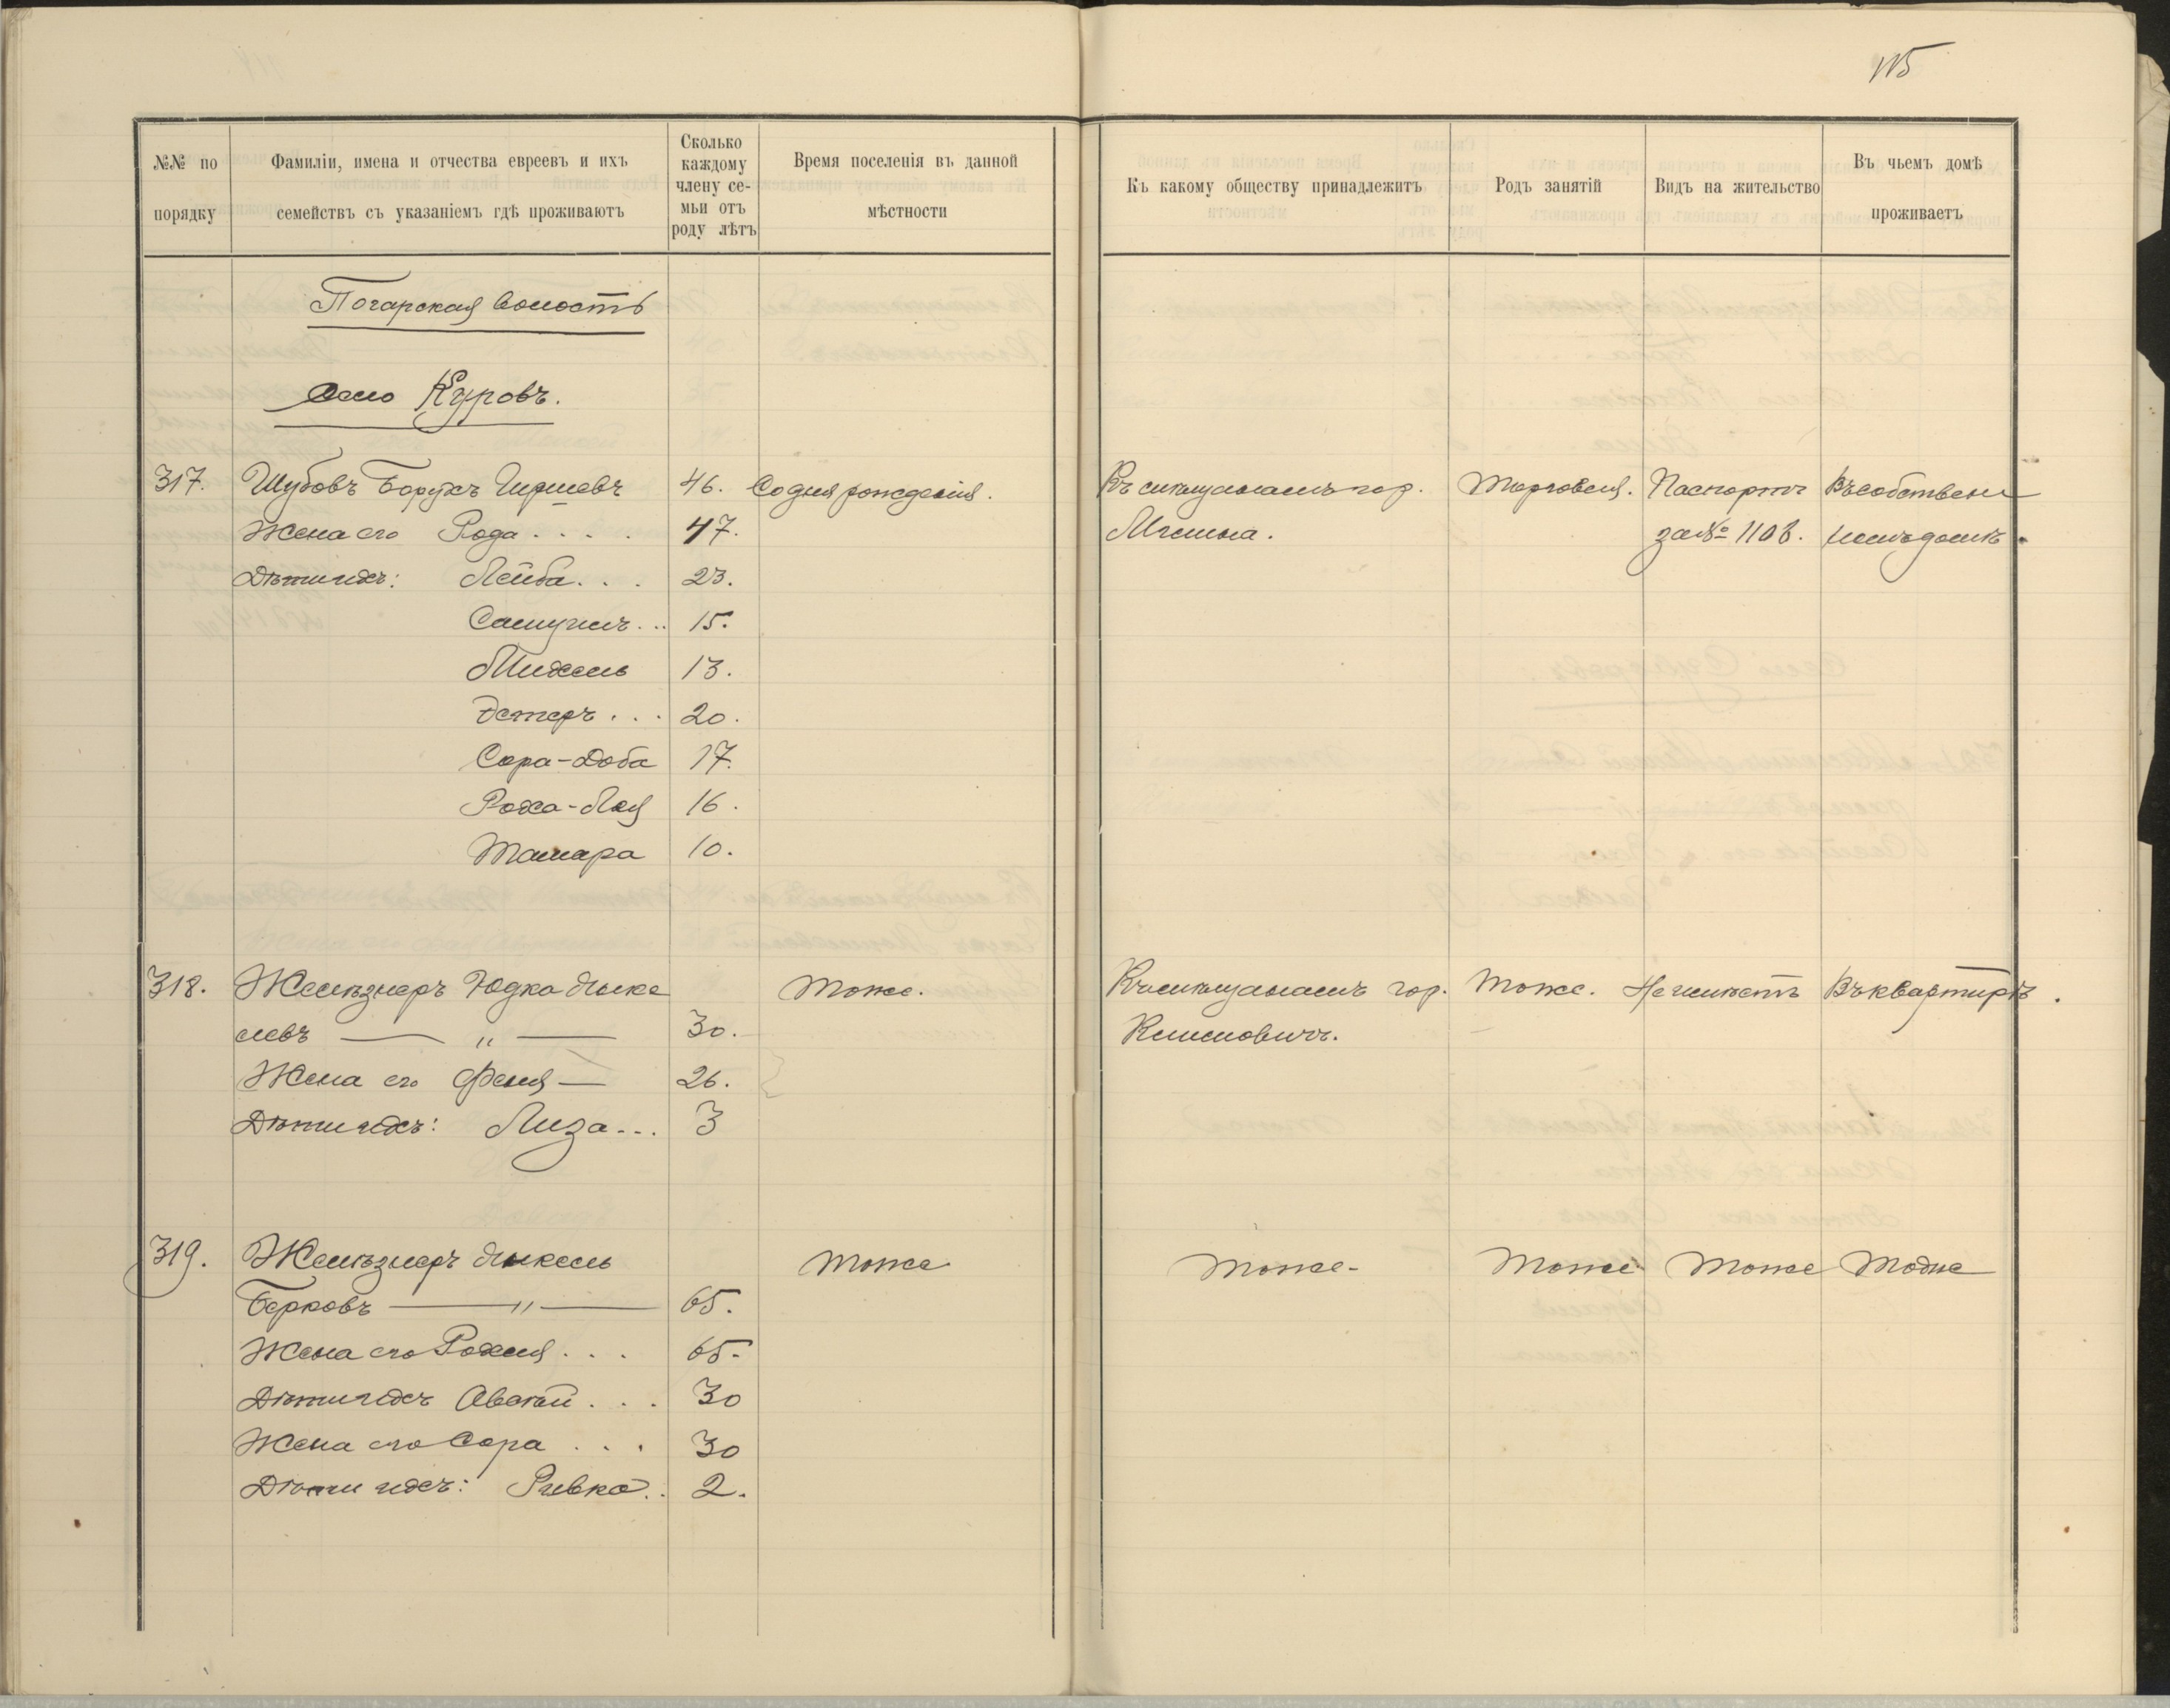 115
№№ по порядку
Фамиліи, имена и отчества евреевъ и ихъ семействъ съ указаніемъ гдѣ проживаютъ
Сколько каждому члену се-мьи отъ роду лѣтъ
Время поселенія въ данной мѣстности
Къ какому обществу принадлежитъ
Родъ занятій
Видъ на жительство
Въ чьемъ домѣ проживаетъ
Погарская волость
Село Куровъ.
317. Шубовъ Борухъ Гиршевъ 46. Со дня рожденія. Къ мѣщанамъ гор. Торговля. Паспортъ Въ собствен
Жена его Рода.... 47. Мглина. за № 1108. номъ домѣ.
Дѣти ихъ: Лейба... 23.
Самуилъ... 15.
Михель 13.
Эстеръ... 20.
Сора-Доба 17.
Роха-Лея 16.
Тамара 10.
318. Желѣзнеръ Юдка 
левъ — " — 30.
Тоже. Къ мѣщанамъ гор. Тоже. Не имѣетъ Въ квартирѣ.
Климовичъ.
Жена его Феня — 26.
Дѣти ихъ: Лиза... 3
319. Желѣзнеръ Тоже Тоже- Тоже Тоже Тоже
Берковъ — " — 65.
Жена его... 65.
Дѣти ихъ... 30
Жена его Сора... 30
Дѣти ихъ: Ривка.. 2.